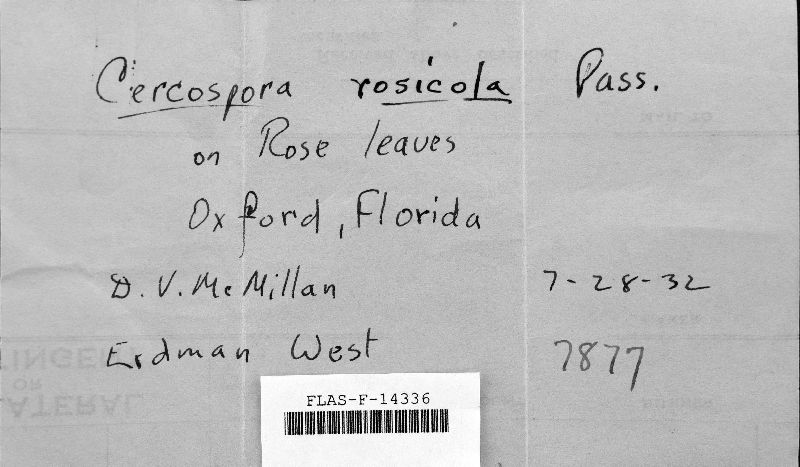 Cercospora rosicola Pass.
on Rose leaves
Oxford, Florida
D. V. McMillan 7-28-32
Erdman West 7877
FLAS-F-14336